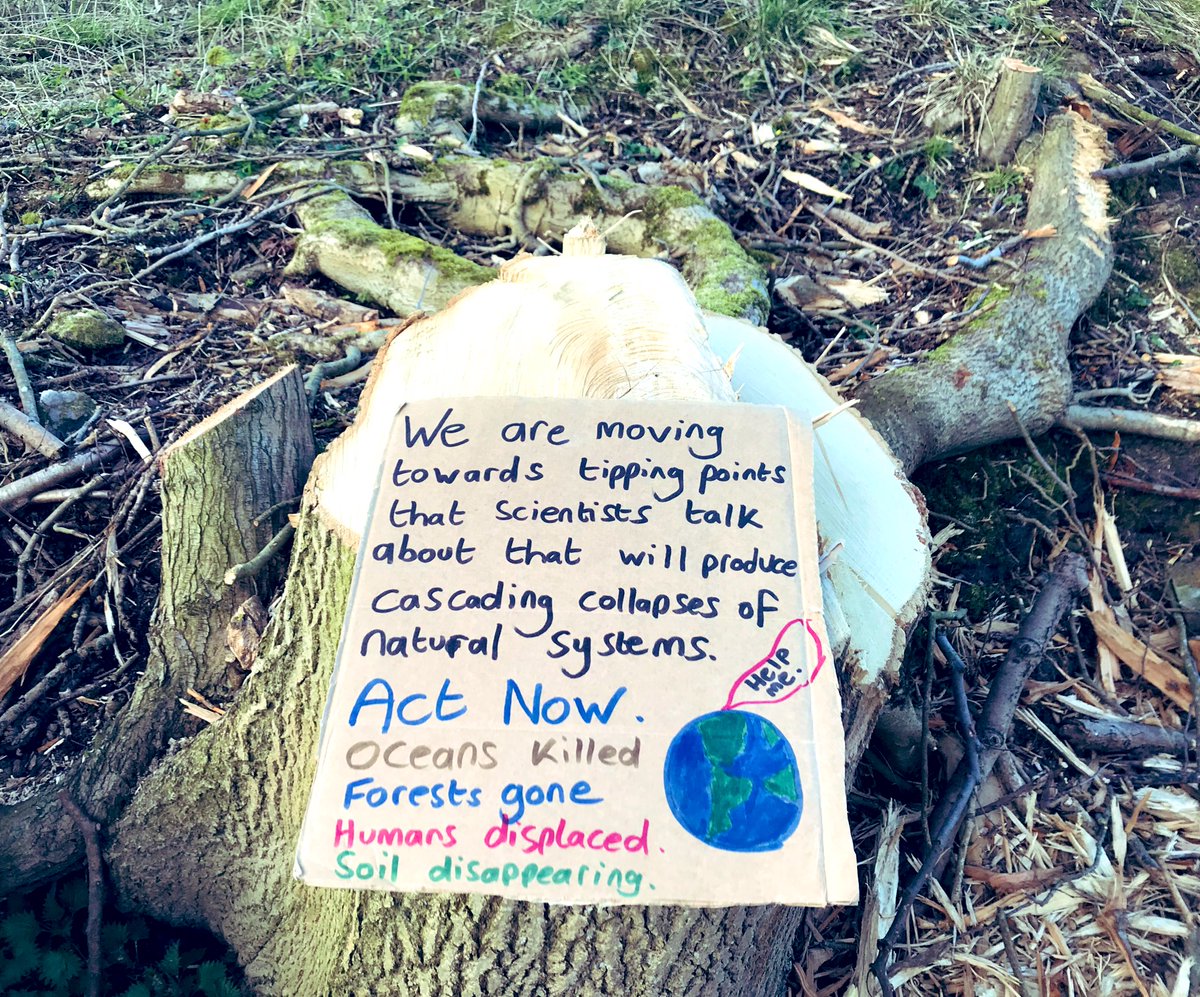 We are moving
towards tipping points
that scientists talk
about that will produce
cascading collapses of
natural systems.
Act Now.
Oceans killed
Forests gone
Humans displaced.
Soil disappearing.
Help
me!